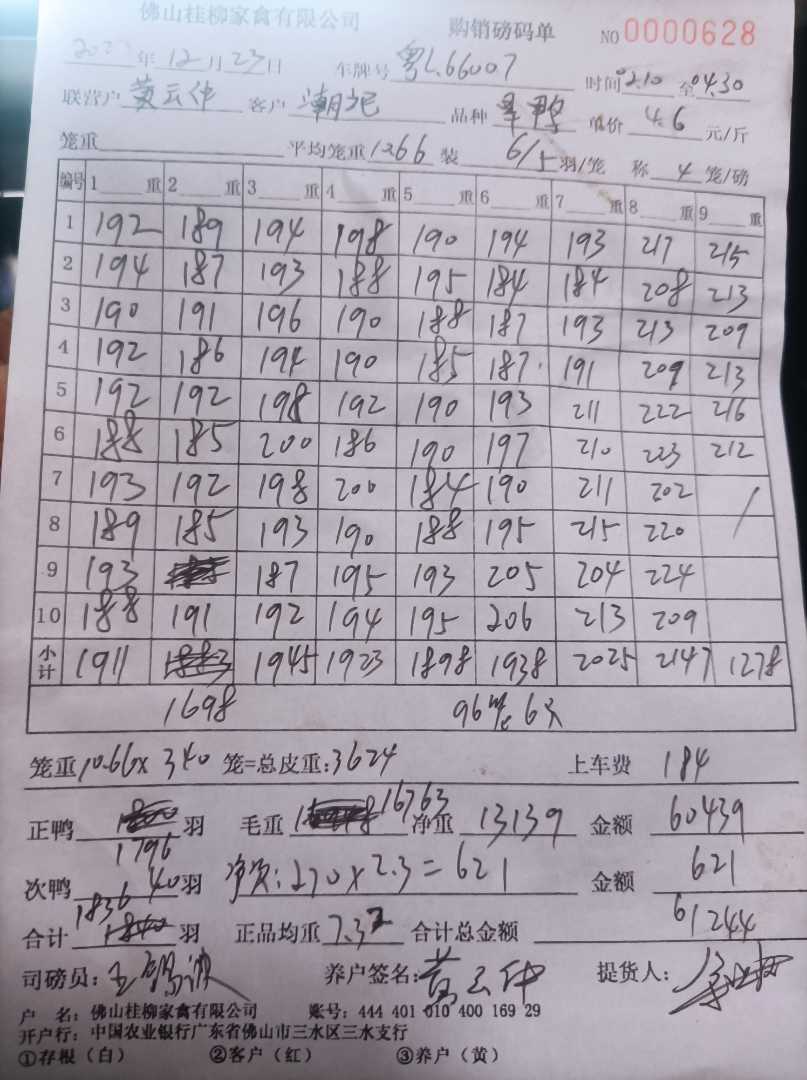 佛山桂柳家禽有限公司 购销磅码单 NO 0000628
年 12月23日 车牌号 粤L66007 时间 02.10 至 04.30
联营户 黄云仲 客户 潮记 品种 旱鸭 单价 4.6 元/斤
笼重 平均笼重 1066 装 6/5 羽/笼 称 4 笼/磅
编号 1 重 2 重 3 重 4 重 5 重 6 重 7 重 8 重 9 重
1 192 189 194 198 190 194 193 217 215
2 194 187 193 188 195 184 184 208 213
3 190 191 196 190 188 187 193 213 209
4 192 186 194 190 185 187 191 209 213
5 192 192 198 192 190 193 211 222 216
6 188 185 200 186 190 197 210 223 212
7 193 192 198 200 184 190 211 202
8 189 185 193 190 188 195 215 220
9 193 187 195 193 205 204 224
10 188 191 192 194 195 206 213 209
小计 1911 1883 1945 1923 1898 1938 2025 2147 1278
1698 96 6
笼重 10.66 x 340 笼=总皮重: 3624 上车费 184
正鸭 1796 羽 毛重 16763 净重 13139 金额 60439
次鸭 40 羽 净次: 270 x 2.3 = 621 金额 621
合计 1836 1840 羽 正品均重 7.32 合计总金额 61244
司磅员: 养户签名: 黄云仲 提货人:
户 名: 佛山桂柳家禽有限公司 账号: 444 401 010 400 169 29
开户行: 中国农业银行广东省佛山市三水区三水支行
①存根（白） ②客户（红） ③养户（黄）